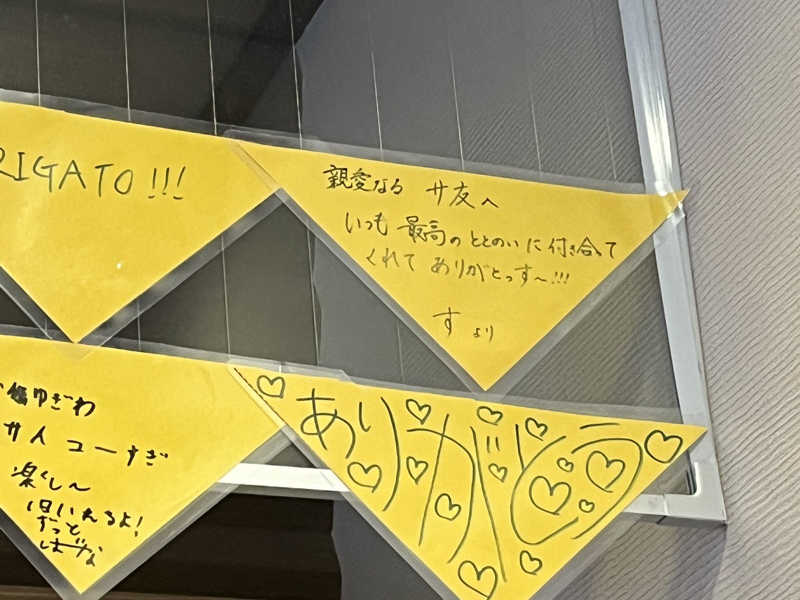 RIGATO!!!
親愛なる サ友へ
いつも 最高の ととのいに 付き合って
くれて ありがとっす〜!!!
す より
ゆざわ
サ人 コーすぎ
楽しく〜
ずっと
ありがとう